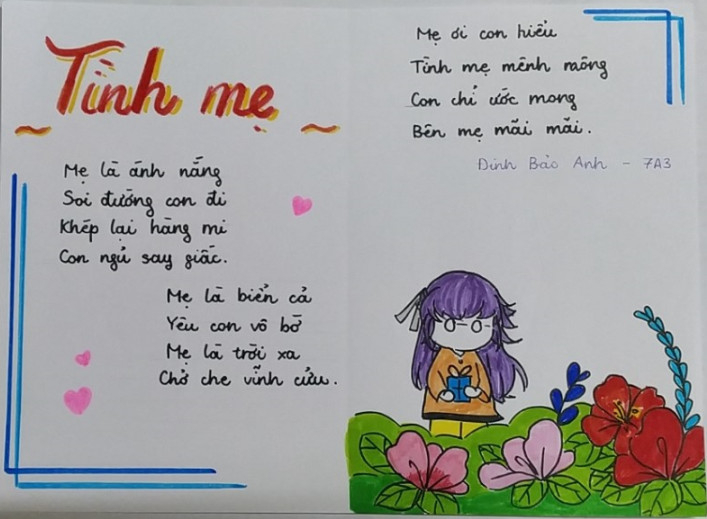 Tình mẹ
Mẹ là ánh nắng
Soi đường con đi
Khép lại hàng mi
Con ngủ say giấc.
Mẹ là biển cả
Yêu con vô bờ
Mẹ là trời xa
Chở che vĩnh cửu.
Mẹ ơi con hiểu
Tình mẹ mênh mông
Con chỉ ước mong
Bên mẹ mãi mãi.
Đinh Bảo Anh - 7A3